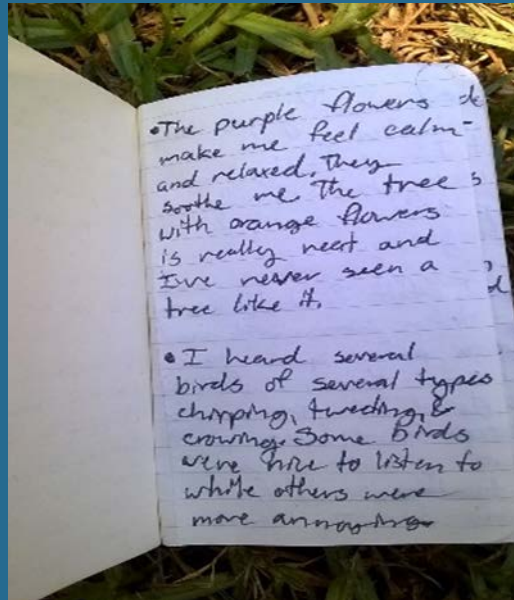 •The purple flowers
make me feel calm
and relaxed. They
soothe me. The tree
with orange flowers
is really neat and
I've never seen a
tree like it.
• I heard several
birds of several types
chirping, tweeting, &
crowing. Some birds
were nice to listen to
while others were
more annoying